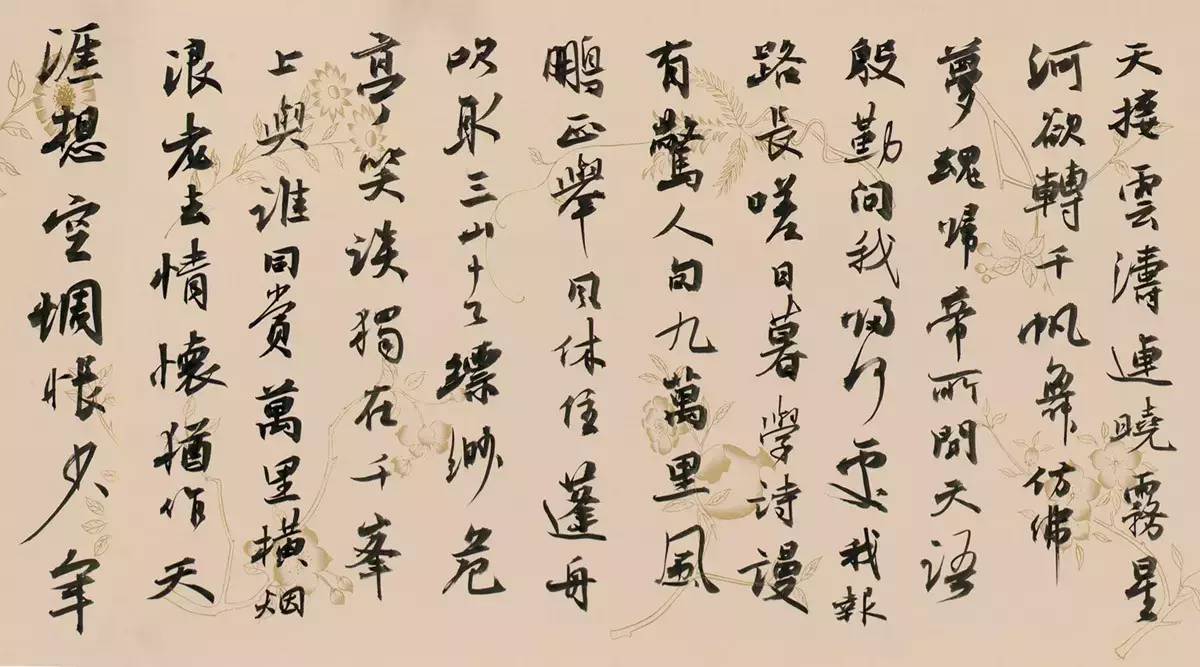 天接雲濤連曉霧星
河欲轉千帆舞仿佛
夢魂歸帝所聞天語
殷勤問我歸何處我報
路長嗟日暮學詩謾
有驚人句九萬里風
鵬正舉風休住蓬舟
吹取三山去縹緲危
亭笑談獨在千峯
上與誰同賞萬里橫烟
浪老去情懷猶作天
涯想空惆悵少年